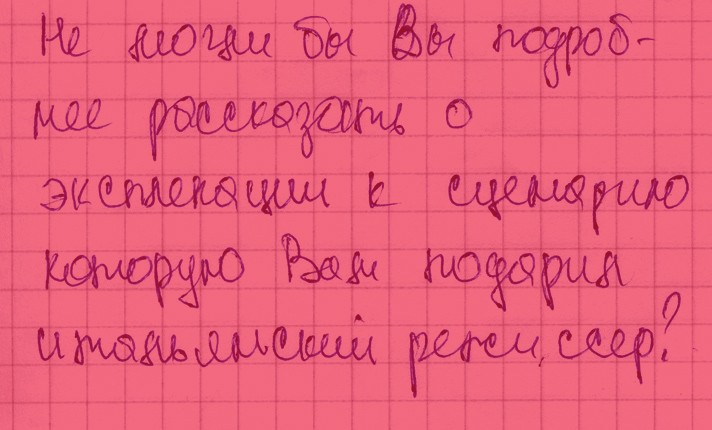 Не могли бы Вы подроб-
нее рассказать о
эксплекации к сценарию
которую Вам подарил
итальянский режиссер?